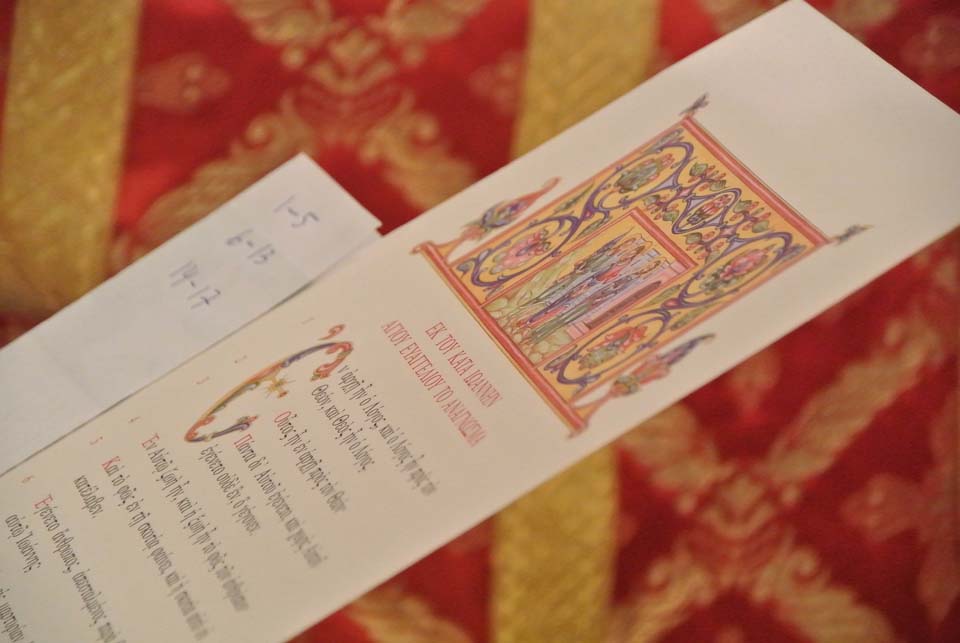 1-5
6-13
14-17
ΕΚ ΤΟΥ ΚΑΤΑ ΙΩΑΝΝΗΝ
ΑΓΙΟΥ ΕΥΑΓΓΕΛΙΟΥ ΤΟ ΑΝΑΓΝΩΣΜΑ
1 Ἐν ἀρχῇ ἦν ὁ Λόγος, καὶ ὁ Λόγος ἦν πρὸς τὸν
Θεόν, καὶ Θεὸς ἦν ὁ Λόγος.
2 Οὗτος ἦν ἐν ἀρχῇ πρὸς τὸν Θεόν
3 Πάντα δι' Αὐτοῦ ἐγένετο καὶ χωρὶς Αὐτοῦ
ἐγένετο οὐδὲ ἓν ὃ γέγονεν.
4 Ἐν Αὐτῷ ζωὴ ἦν, καὶ ἡ ζωὴ ἦν τὸ φῶς τῶν ἀνθρώπων
5 Καὶ τὸ φῶς ἐν τῇ σκοτίᾳ φαίνει, καὶ ἡ σκοτία αὐτὸ οὐ
κατέλαβεν.
6 Ἐγένετο ἄνθρωπος ἀπεσταλμένος παρὰ
αὐτῷ Ἰωάννης